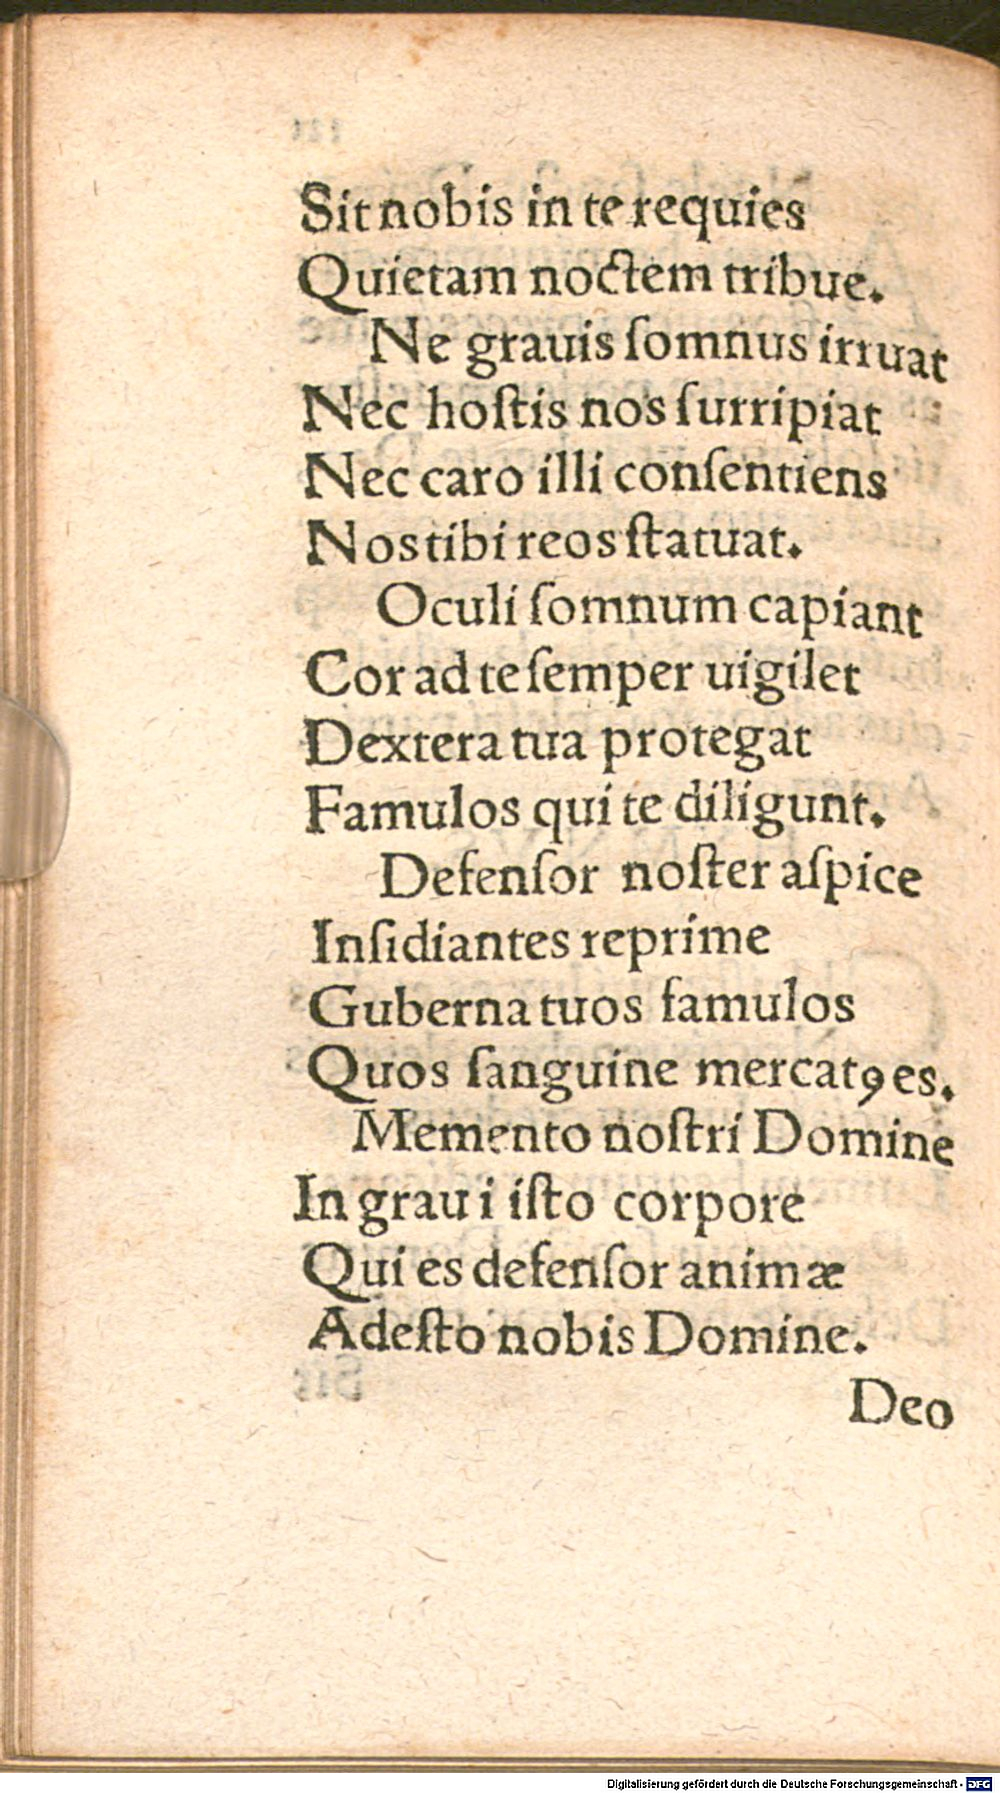 Sit nobis in te requies
Quietam noctem tribue.
Ne grauis ſomnus irruat
Nec hoſtis nos ſurripiat
Nec caro illi conſentiens
Nos tibi reos ſtatuat.
Oculi ſomnum capiant
Cor ad te ſemper uigilet
Dextera tua protegat
Famulos qui te diligunt.
Defenſor noſter aſpice
Inſidiantes reprime
Guberna tuos famulos
Quos ſanguine mercatꝯ es.
Memento noſtri Domine
In graui iſto corpore
Qui es defenſor animæ
Adeſto nobis Domine.
Deo
Digitalisierung gefördert durch die Deutsche Forschungsgemeinschaft - DFG